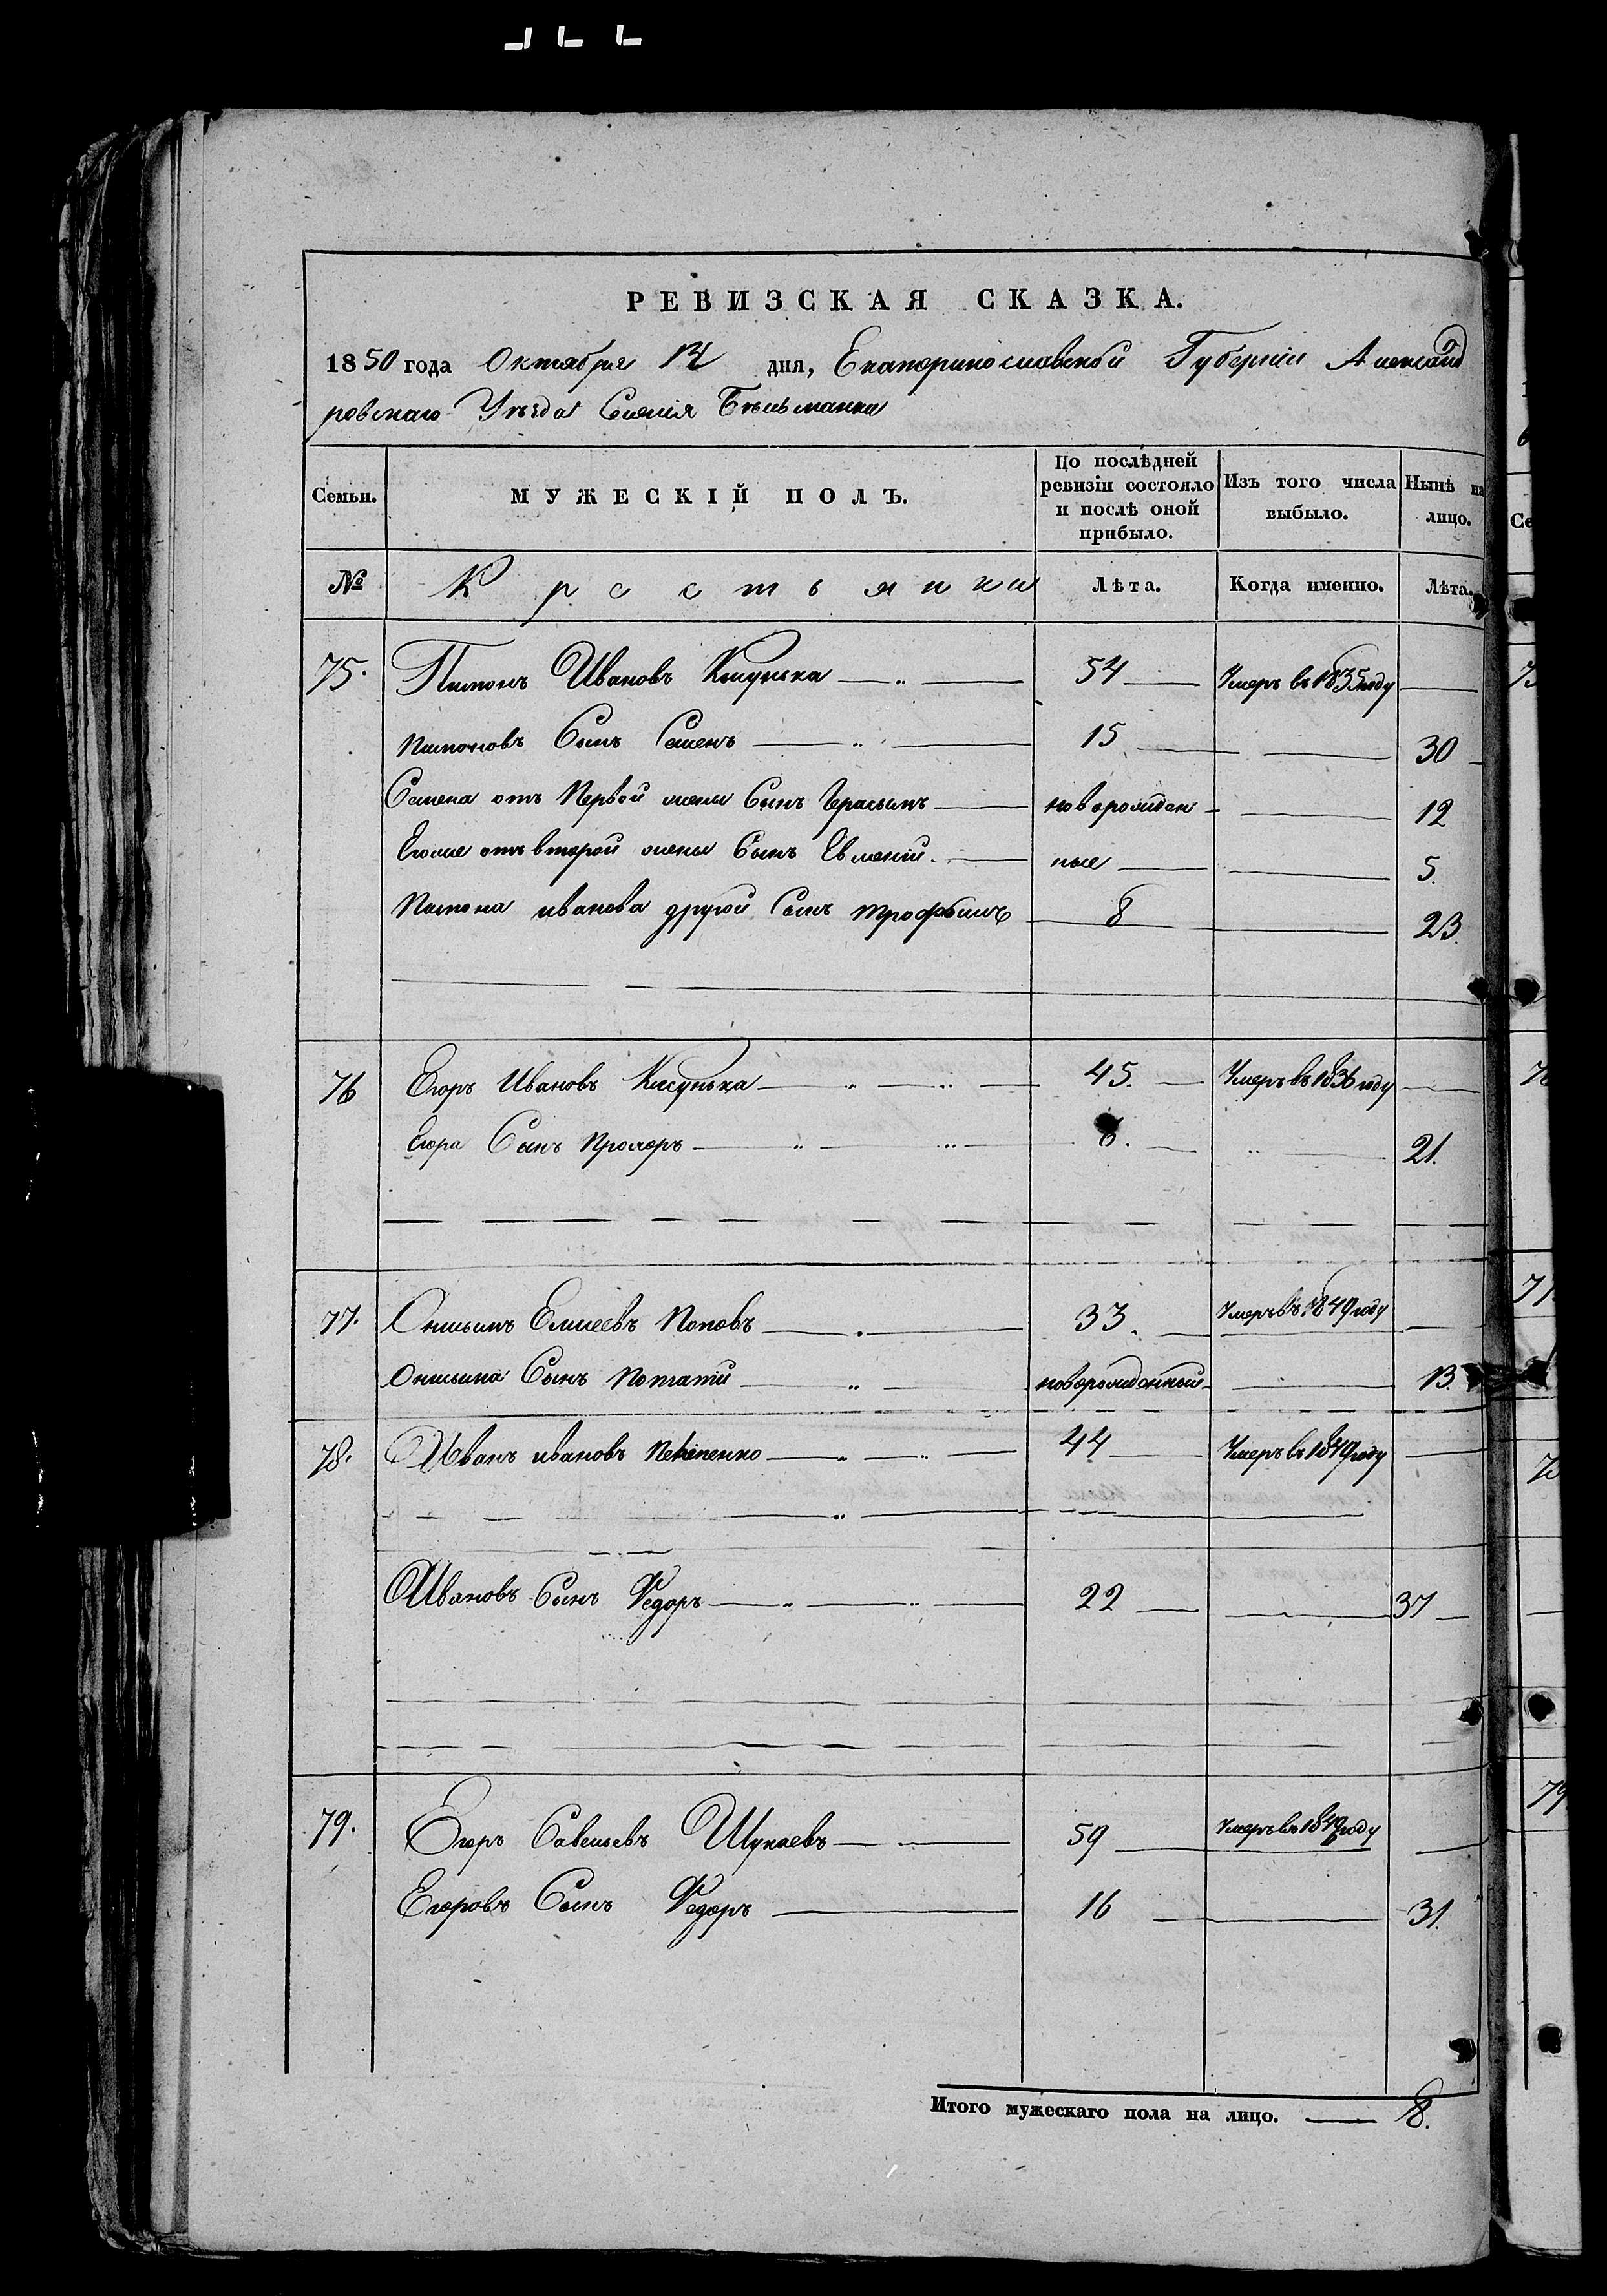 РЕВИЗСКАЯ СКАЗКА.
1850 года Октября 14 дня, Екатеринославской Губерніи Александ
ровскаго Уѣзда Селенія
Семьи. МУЖЕСКІЙ ПОЛЪ. По послѣдней ревизіи состояло и послѣ оной прибыло. Изъ того числа выбыло. Нынѣ на лицо.
№ Крестьянки Лѣта. Когда именно. Лѣта.
75. Пимонъ Ивановъ 54 Умеръ въ 1835 году
Пимоновъ Сынъ Семенъ 15 30
Семена отъ Первой жены Сынъ Герасимъ новорожден 12
Егоже отъ второй жены Сынъ Евменій ные 5.
Пимона иванова другой Сынъ трофимъ 8 23.
76 Егоръ Ивановъ 45. Умеръ въ 1836 году
Егора Сынъ Прохоръ 6. 21.
77. Онисимъ Елисеевъ Поповъ 33. Умеръ въ 1849 году
Онисима Сынъ Потапій новорожденный 13.
78. Иванъ ивановъ 44 Умеръ въ 1849 году
Ивановъ Сынъ Федоръ 22 37
79. Егоръ Савельевъ 59 Умеръ въ 1849 году
Егоровъ Сынъ Федоръ 16 31.
Итого мужескаго пола на лицо. 8.